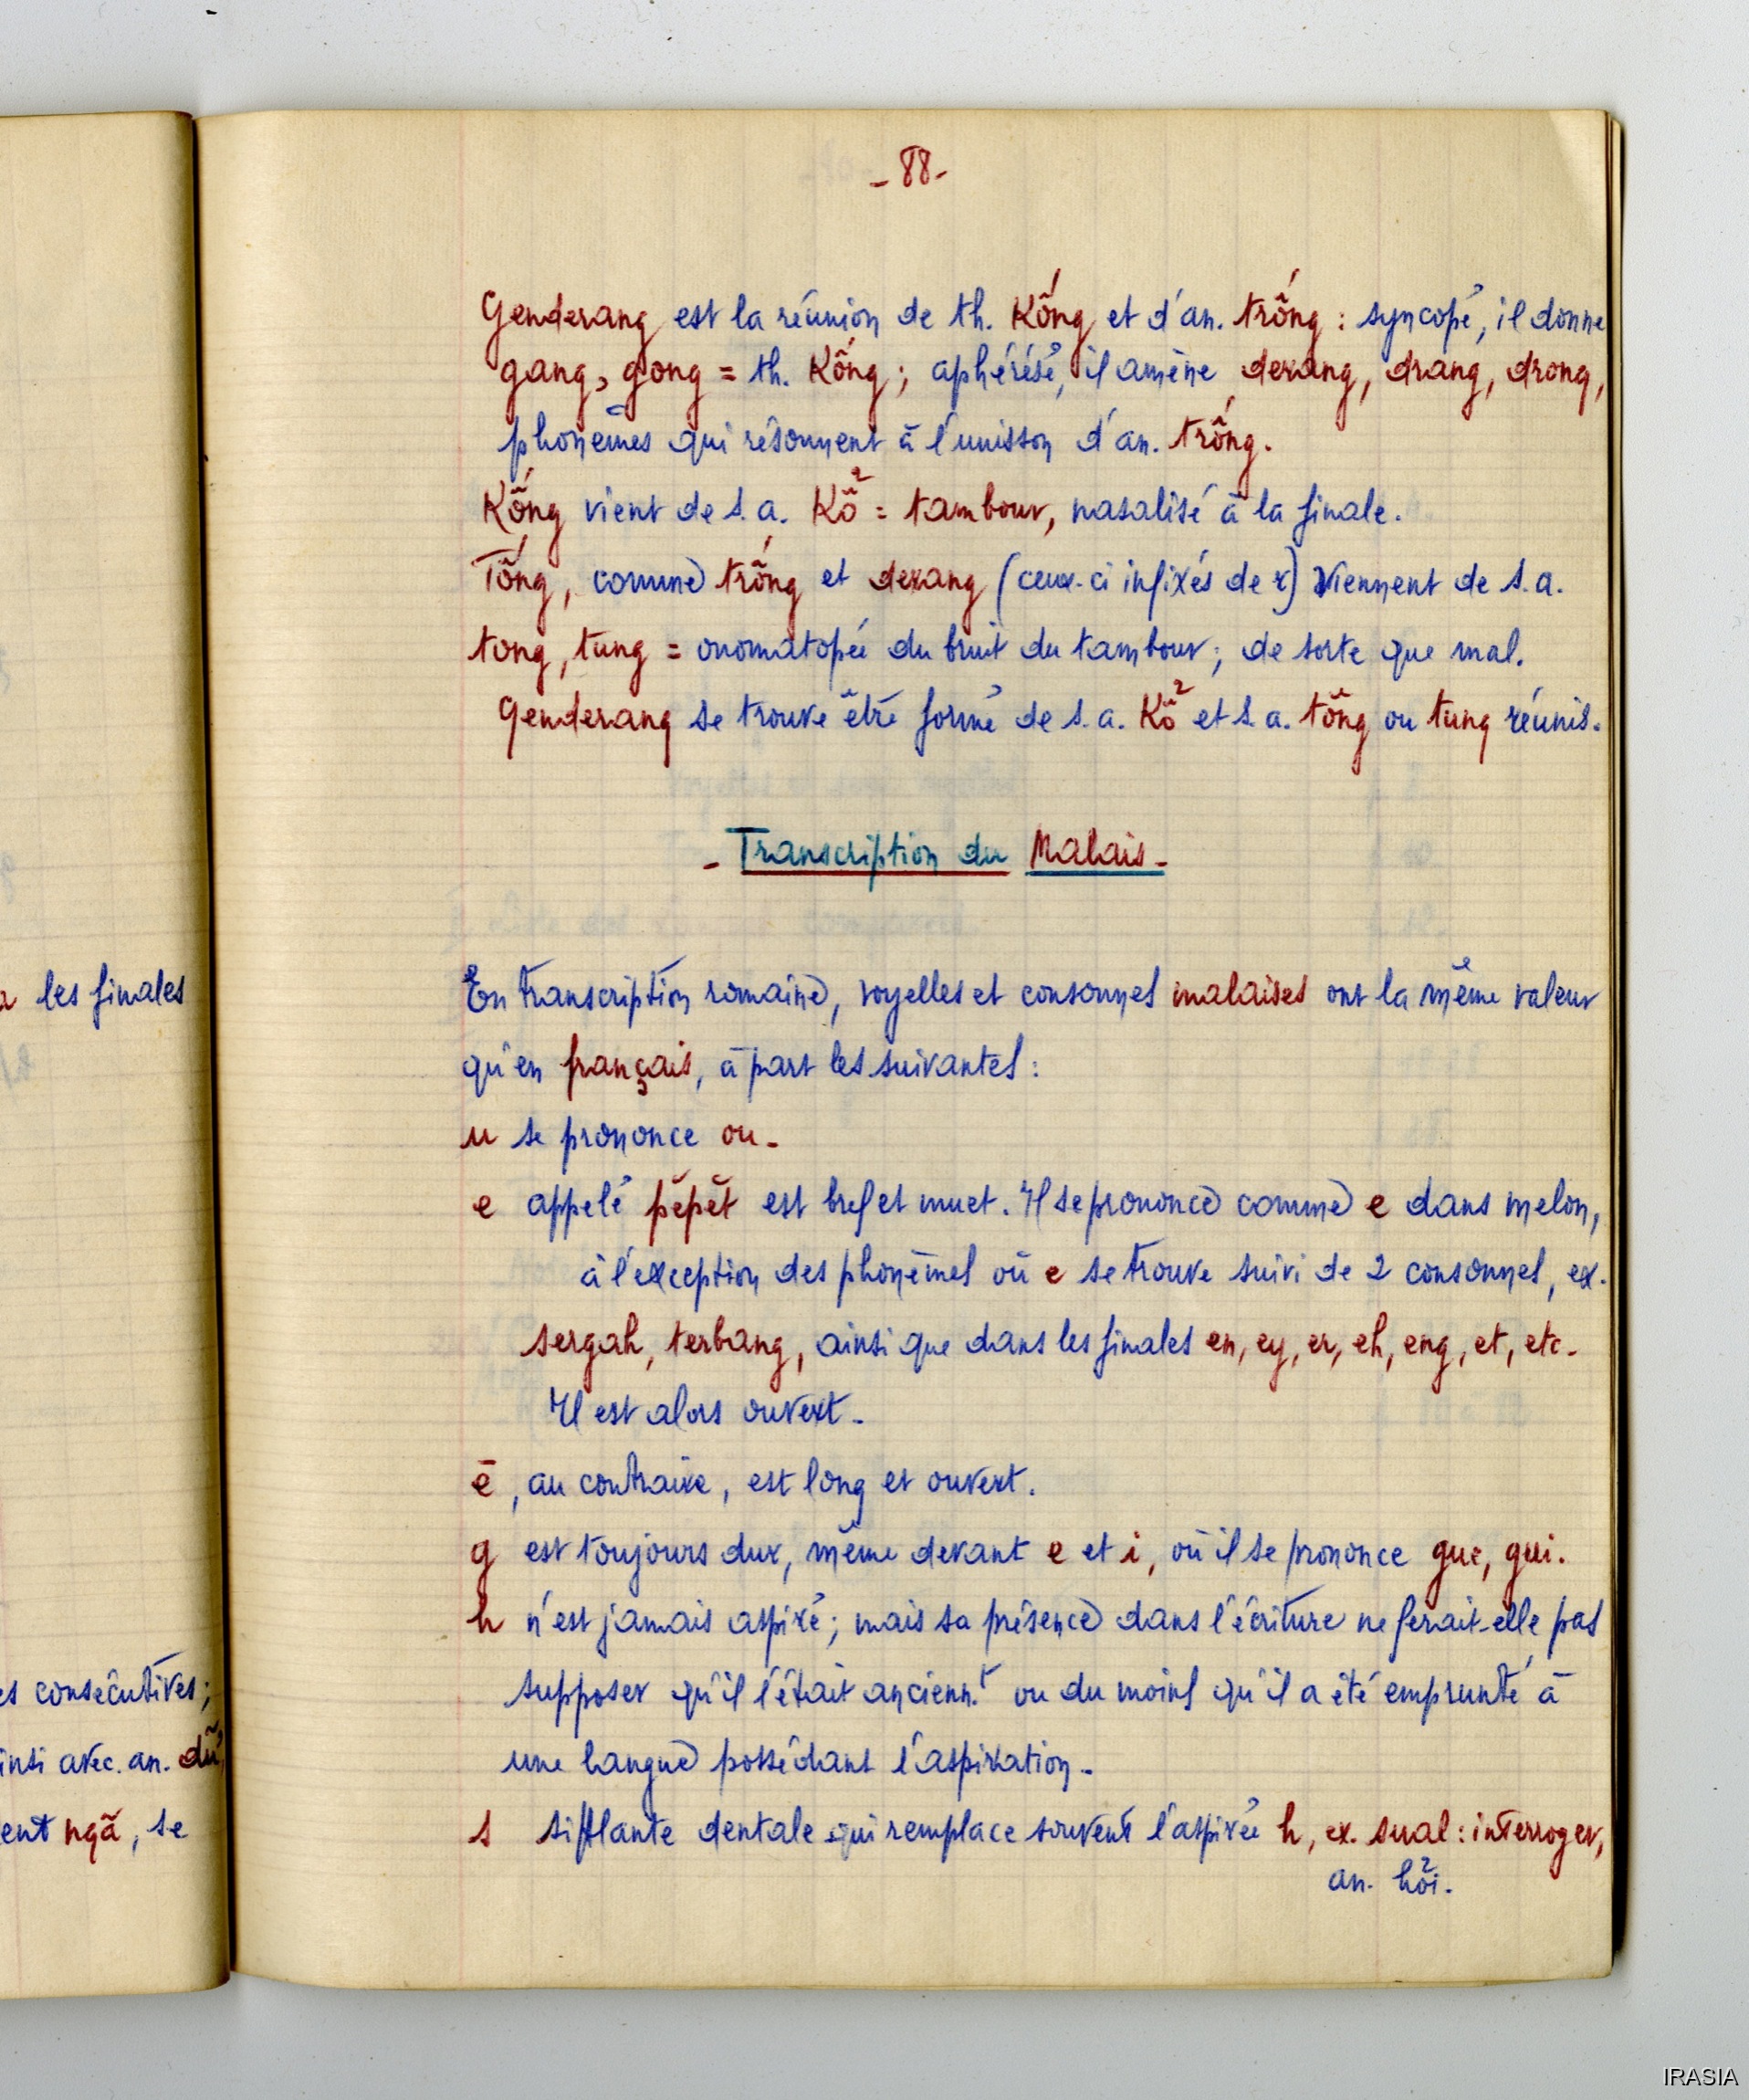 - 88 -
Genderang est la réunion de th. Kống et d'an. trống : syncopé, il donne
gang, gong = th. Kống ; aphérésé, il amène derang, drang, drong,
phonèmes qui résonnent à l'unisson d'an. trống.
Kống vient de s. a. Kổ = tambour, nasalisé à la finale.
Tống, comme trống et derang (ceux-ci infixés de r) viennent de s. a.
tong, tung = onomatopée du bruit du tambour ; de sorte que mal.
Genderang se trouve être formé de s. a. Kổ et s. a. tông ou tung réunis.
- Transcription du Malais -
En transcription romaine, voyelles et consonnes malaises ont la même valeur
qu'en français, à part les suivantes :
u se prononce ou -
e appelé pĕpĕt est bref et muet. Il se prononce comme e dans melon,
à l'exception des phonèmes où e se trouve suivi de 2 consonnes, ex.
sergah, terbang, ainsi que dans les finales en, ey, er, eh, eng, et, etc -
Il est alors ouvert -
ē, au contraire, est long et ouvert.
g est toujours dur, même devant e et i, où il se prononce gue, gui.
h n'est jamais aspiré ; mais sa présence dans l'écriture ne ferait-elle pas
supposer qu'il l'était ancienn.t ou du moins qu'il a été emprunté à
une langue possédant l'aspiration -
s sifflante dentale qui remplace souvent l'aspirée h, ex. sual : interroger,
an. hỏi.
les finales
es consécutives ;
insi avec. an. dũ
ent ngã, se
IRASIA